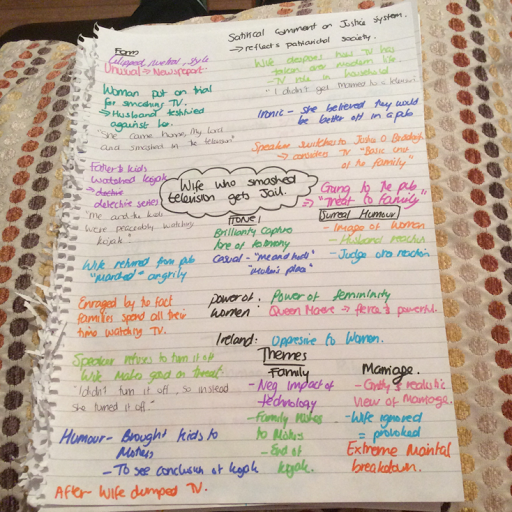 Satirical Comment on Justice System.
→ reflects patriarchal society.
Form
Clipped neutral style
Unusual → Newsreport
Woman put on trial
for smashing TV.
→ Husband testified
against her.
"She came home, My Lord
and smashed in the television"
Father & kids
watched kojak
→
detective series
"me and the kids
were peaceably watching
kojak"
Wife returned from pub
"marched" angrily
Enraged by the fact
families spend all their
time watching TV.
Speaker refuses to turn it off
Wife makes good on threat.
"I didn't turn it off, so instead
She turned it off"
Humour - Brought kids to
Mothers
- To see conclusion of kojak
After Wife dumped TV.
Wife who smashed
television gets Jail.
Wife despairs how TV has
taken over modern life.
- TV role in household
"I didn't get married to a television"
Ironic - she believed they would
be better off in a pub
Speaker switches to Justice
→ considers TV "Basic unit
of the family"
Going to the pub
"Threat to Family"
Tone:
Brilliantly captures
tone of testimony
Casual - "me and kids"
"mother's place"
Surreal Humour
- Image of woman
- Husband reaction
- Judge reaction
Power of
Women:
Power of femininity
Queen Maeve → fierce & powerful.
Ireland: Oppressive to Women.
Themes
Family
- Neg impact of
technology
- Family Moves
to Mothers
- End of
kojak.
Marriage.
- Gritty & realistic
View of Marriage.
- Wife ignored
= provoked
Extreme Marital
breakdown.